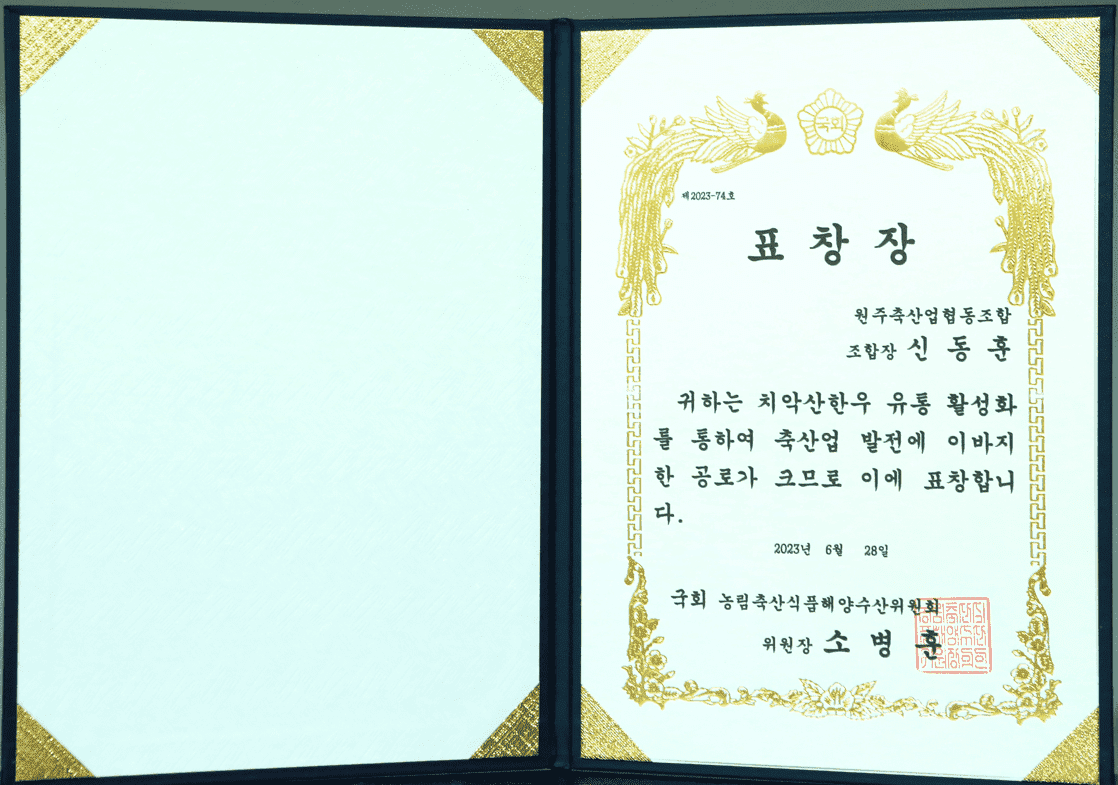 국회
제2023-74호
표 창 장
원주축산업협동조합
조합장 신 동 훈
귀하는 치악산한우 유통 활성화
를 통하여 축산업 발전에 이바지
한 공로가 크므로 이에 표창합니
다.
2023년 6월 28일
국회 농림축산식품해양수산위원회
위원장 소 병 훈